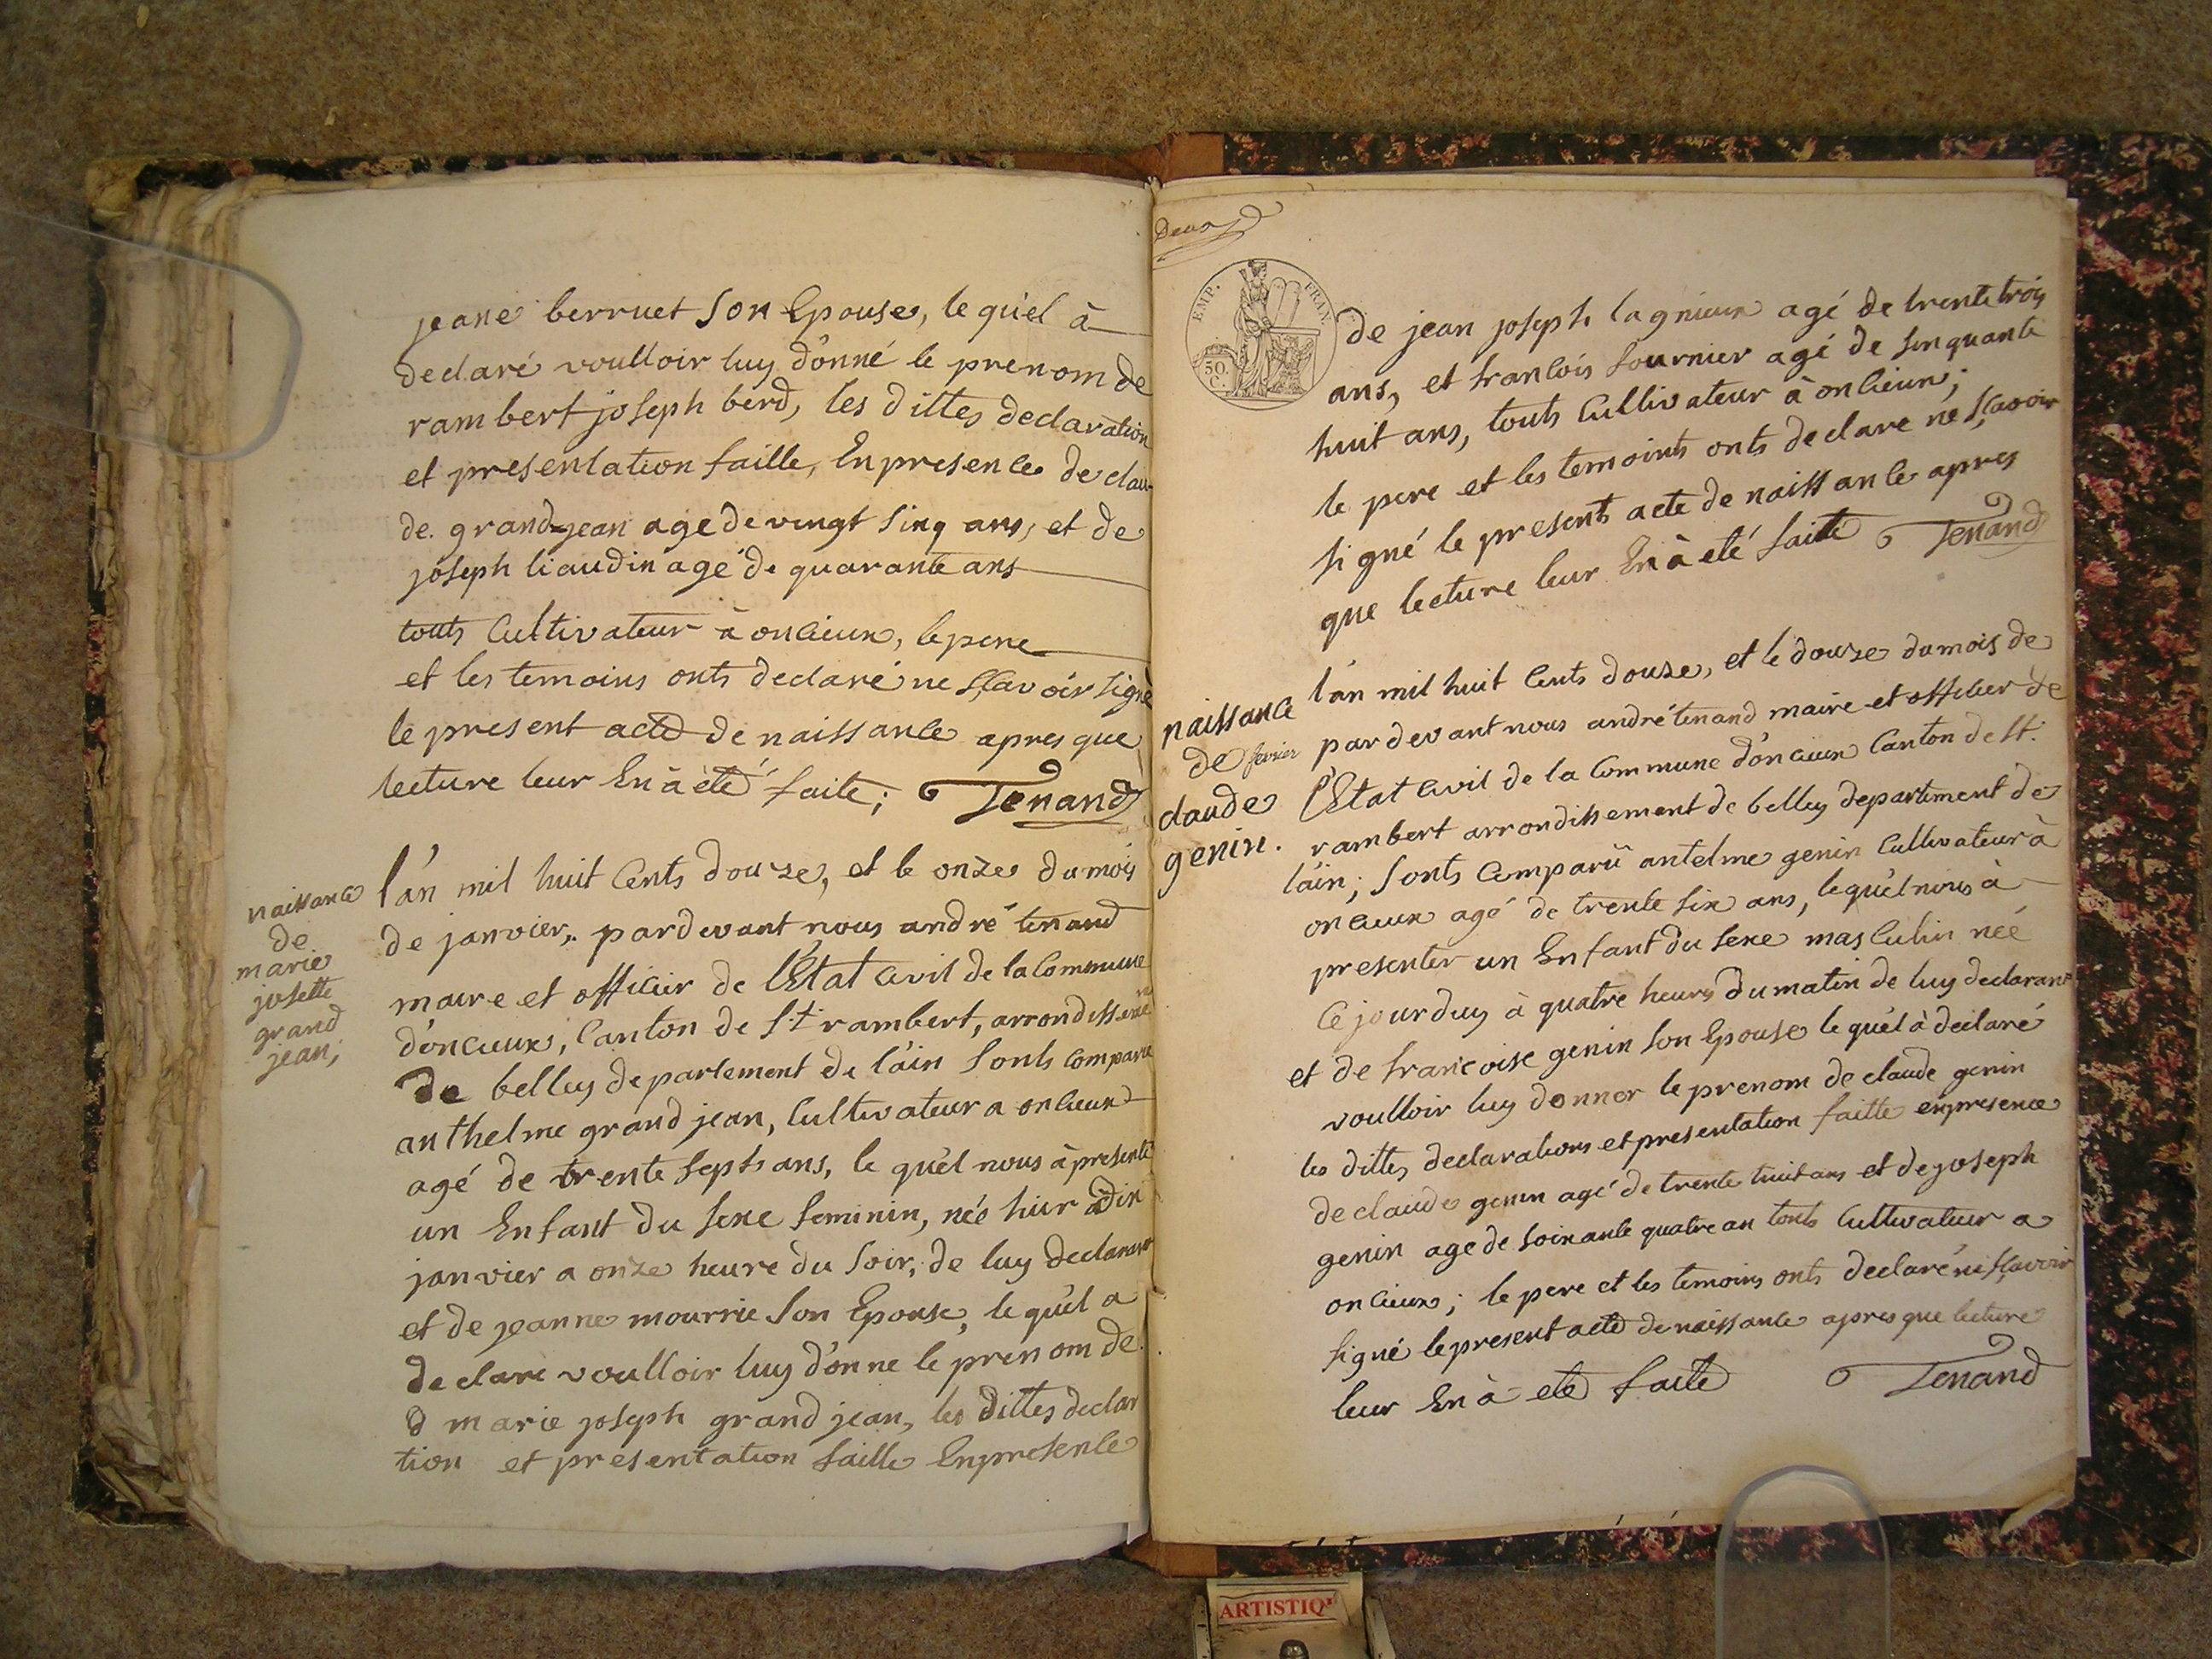 jeane berruet son Epouse, le qu'el à
declaré voulloir luy d'onné le prenom de
rambert joseph berd, les dittes declaration
et presentation faitte, En presence de clau
de. grand=jean age de vingt sinq ans, et de
joseph liaudin agé de quarante ans
touts Cultivateur à oncieux, le pere
et les temoins onts declaré ne sçavoir signé
le present acte de naissance apres que
lecture leur En à été faite; Tenand
naissance
de
marie
josette
grand
jean;
l'an mil huit Cents douze, et le onze du mois
de janvier, pardevant nous andré tenand
maire et officier de l'Etat Civil de la Commune
d'oncieux, Canton de St rambert, arrondisseme
de belley departement de l'ain sonts comparu
anthelme grand jean, Cultivateur a oncieux
agé de trente septs ans, le qu'el nous à presenté
un Enfant du sexe feminin, née hier à dix
janvier a onze heure du soir, de luy declarant
et de jeanne mourrie son Epouse, le qu'el a
declare voulloir luy d'onne le prenom de
d marie joseph grand jean, les dittes declar
tion et presentation faitte En presence
Deux
EMP. FRAN.
50
C.
de jean joseph lagnieux agé de trente trois
ans, et francois fournier agé de sinquante
huit ans, touts Cultivateur à oncieux;
le pere et les temoints onts declare ne sçavoir
signé le presents acte de naissance apres
que lecture leur En à eté faite Tenand
naissance
de
claude
genin.
l'an mil huit Cents douze, et le douze du mois de
fevrier pardevant nous andré tenand maire et officier de
l'Etat Civil de la Commune d'oncieux Canton de St.
rambert arrondissement de belley departement de
l'ain; sonts Comparü antelme genin Cultivateur à
oncieux agé de trente six ans, lequ'el nous à
presenter un Enfant du sexe masculin neé
Ce jourduy à quatre heures du matin de luy declarant
et de francoise genin son Epouse le qu'el à declaré
voulloir luy donner le prenom de claude genin
les dittes declarations et presentation faitte en presence
de claude genin agé de trente huit ans et de joseph
genin age de soixante quatre an touts Cultivateur a
oncieux; le pere et les temoins onts declaré ne sçavoir
signé le present acte de naissance apres que lecture
leur En à eté faite Tenand
ARTISTIQ